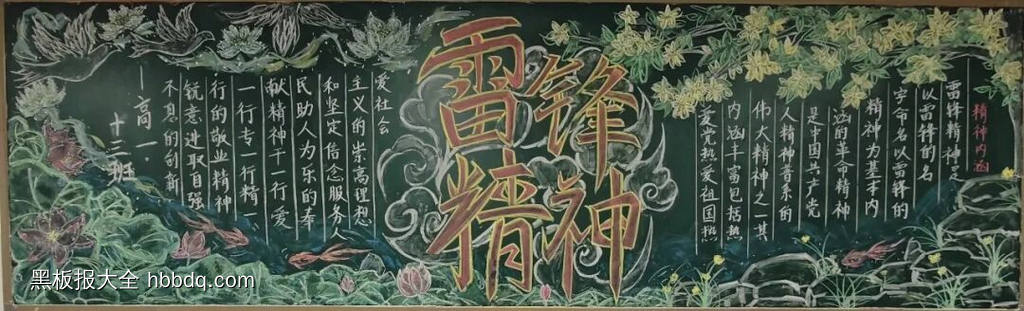 精神内涵
雷锋精神是
以雷锋的名
字命名以雷锋的
精神为基本内
涵的革命精神
是中国共产党
人精神谱系的
伟大精神之一其
内涵丰富包括热
爱党热爱祖国热
雷锋
精神
爱社会
主义的崇高理想
和坚定信念服务人
民助人为乐的奉
献精神干一行爱
一行专一行精一
行的敬业精神
锐意进取自强
不息的创新
一高一·
十三班
黑板报大全 hbbdq.com